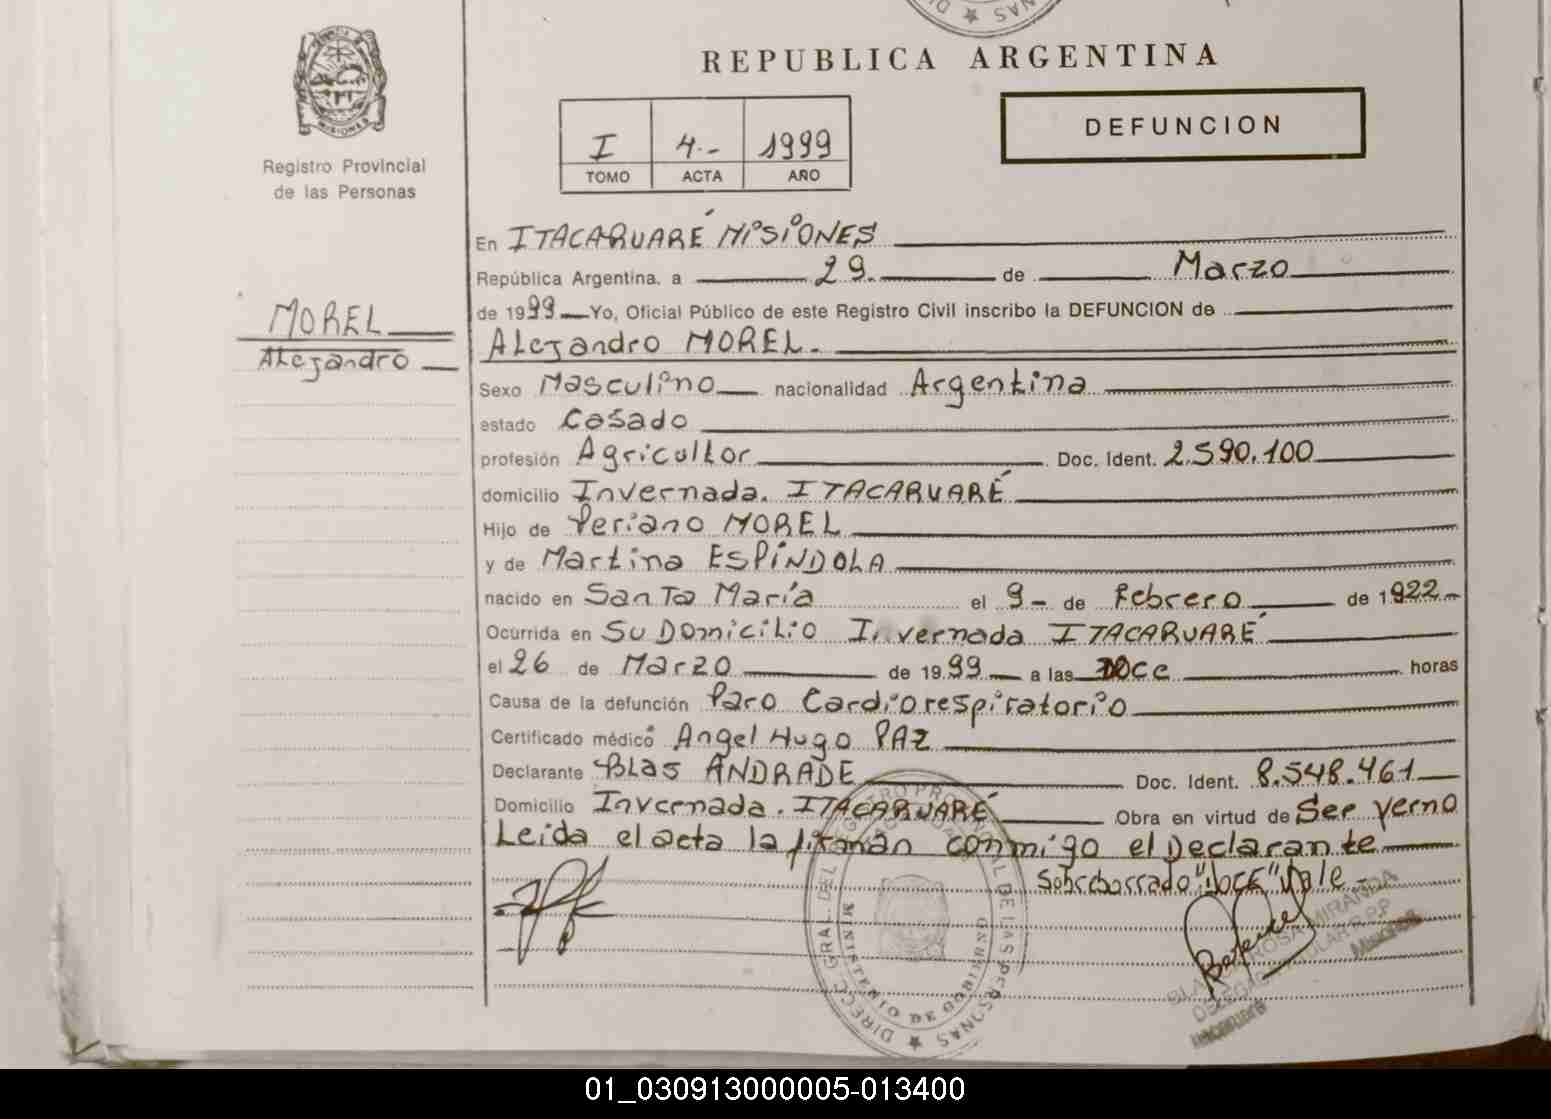 NAS ★ SAN
REPUBLICA ARGENTINA
MISIONES
I 4.- 1999
TOMO ACTA AÑO
DEFUNCION
Registro Provincial
de las Personas
MOREL
Alejandro
En ITACARUARÉ MISIONES
República Argentina, a 29. de Marzo
de 1999 Yo, Oficial Público de este Registro Civil inscribo la DEFUNCION de
Alejandro MOREL.
Sexo Masculino nacionalidad Argentina
estado Casado
profesión Agricultor Doc. Ident. 2.590.100
domicilio Invernada. ITACARUARÉ
Hijo de Periano MOREL
y de Martina ESPÍNDOLA
nacido en Santa María el 9- de Febrero de 1922-
Ocurrida en Su Domicilio Invernada ITACARUARÉ
el 26 de Marzo de 1999 a las DOCE horas
Causa de la defunción Paro Cardiorespiratorio
Certificado médico Angel Hugo PAZ
Declarante Blas ANDRADE Doc. Ident. 8.548.461
Domicilio Invernada. ITACARUARÉ Obra en virtud de Ser yerno
Leida el acta la firmán conmigo el Declarante
Sobreborrado "DOCE" Vale-
DIRECC. GRAL. DEL REGISTRO PROVINCIAL DE LAS PERSONAS ★
MINISTERIO DE GOBIERNO
ROSA MIRANDA
R.P.P
Misiones
01_030913000005-013400